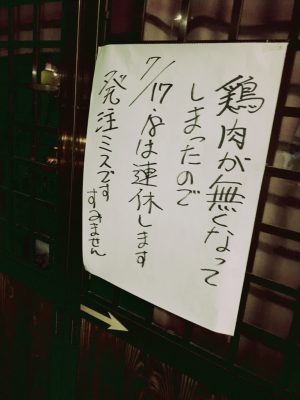 鶏肉が無くなって
しまったので
7/17.18は連休します
発注ミスです
すみません